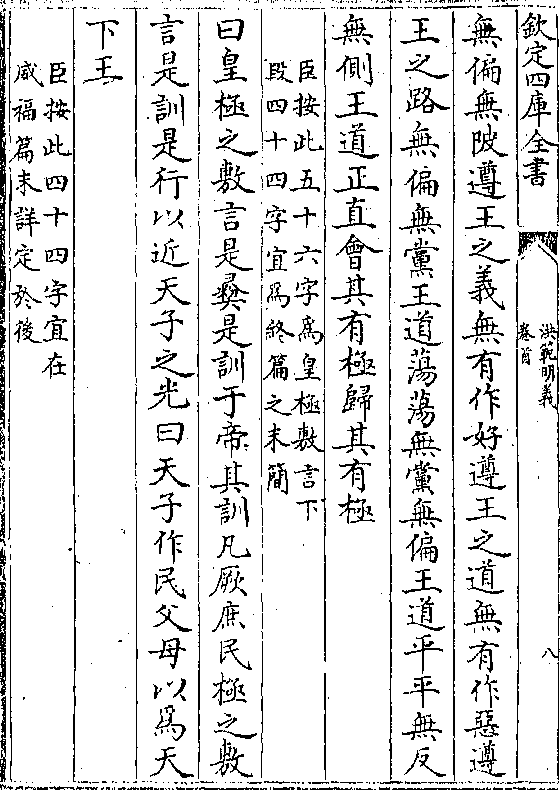 欽定四庫全書
洪範明義
卷首
八
無偏無陂遵王之義無有作好遵王之道無有作惡遵
王之路無偏無黨王道蕩蕩無黨無偏王道平平無反
無側王道正直會其有極歸其有極
臣按此五十六字為皇極敷言下
段四十四字宜為終篇之末簡
曰皇極之敷言是彛是訓于帝其訓凡厥庶民極之敷
言是訓是行以近天子之光曰天子作民父母以為天
下王
臣按此四十四字宜在
威福篇末詳定於後